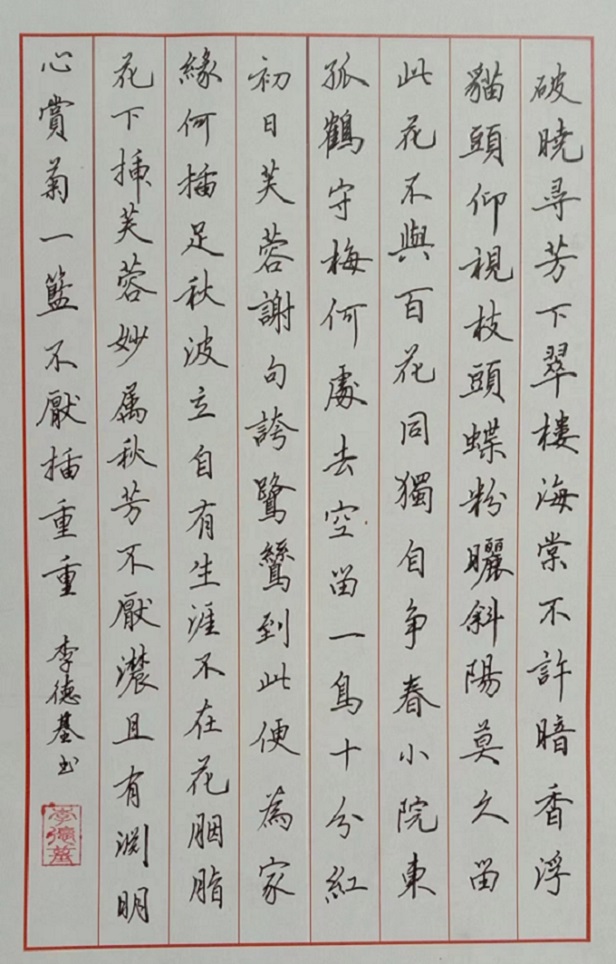 破曉尋芳下翠樓海棠不許暗香浮
貓頭仰視枝頭蝶粉曬斜陽莫久留
此花不與百花同獨自争春小院東
孤鶴守梅何處去空留一鳥十分紅
初日芙蓉謝句誇鷺鷥到此便為家
緣何插足秋波立自有生涯不在花胭脂
花下插芙蓉妙属秋芳不厭濃且有淵明
心賞菊一籃不厭插重重 李德基书
李德基